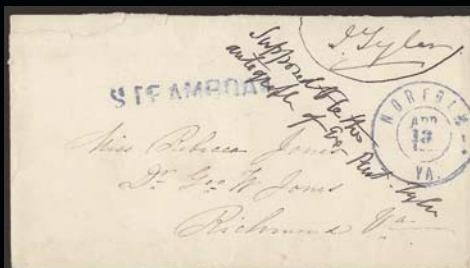 J. Tyler
Supposed to be the
autograph of Ex-Pres't. Tyler
STEAMBOAT
NORFOLK
APR
13
VA.
Miss Rebecca Jones
Dr. Geo W Jones
Richmond Va